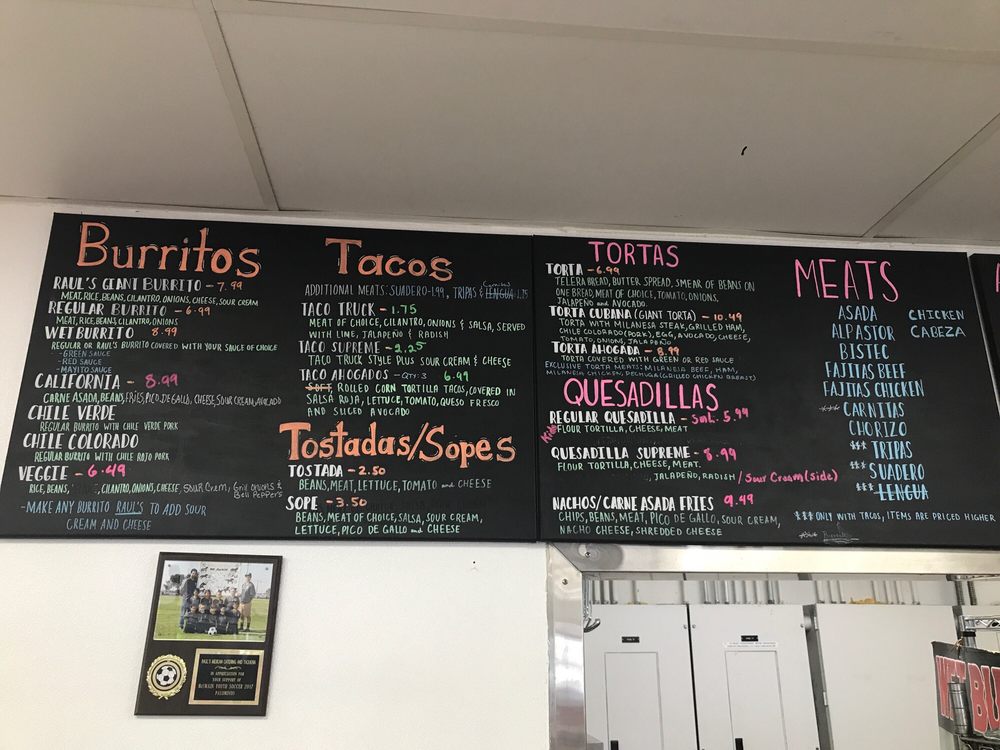 Burritos
RAUL'S GIANT BURRITO - 7.99
MEAT, RICE, BEANS, CILANTRO, ONIONS, CHEESE, SOUR CREAM
REGULAR BURRITO - 6.99
MEAT, RICE, BEANS, CILANTRO, ONIONS
WET BURRITO 8.99
REGULAR OR RAUL'S BURRITO COVERED WITH YOUR SAUCE OF CHOICE
- GREEN SAUCE
- RED SAUCE
- MAYITO SAUCE
CALIFORNIA - 8.99
CARNE ASADA, BEANS, FRIES, PICO DE GALLO, CHEESE, SOUR CREAM, AVOCADO
CHILE VERDE
REGULAR BURRITO WITH CHILE VERDE PORK
CHILE COLORADO
REGULAR BURRITO WITH CHILE ROJO PORK
VEGGIE - 6.49
RICE, BEANS, CILANTRO, ONIONS, CHEESE, SOUR Cream, Grill onions & Bell Peppers
- MAKE ANY BURRITO RAUL'S TO ADD SOUR
CREAM AND CHEESE
Tacos
ADDITIONAL MEATS: SUADERO - 1.99, TRIPAS & LENGUA 2.75
TACO TRUCK - 1.75
MEAT OF CHOICE, CILANTRO, ONIONS & SALSA, SERVED
WITH LIME, JALAPEÑO & RADISH
TACO SUPREME - 2.25
TACO TRUCK STYLE PLUS SOUR CREAM & CHEESE
TACO AHOGADOS - QTY: 3 6.49
SOFT, ROLLED CORN TORTILLA TACOS, COVERED IN
SALSA ROJA, LETTUCE, TOMATO, QUESO FRESCO
AND SLICED AVOCADO
Tostadas/Sopes
TOSTADA - 2.50
BEANS, MEAT, LETTUCE, TOMATO and CHEESE
SOPE - 3.50
BEANS, MEAT OF CHOICE, SALSA, SOUR CREAM,
LETTUCE, PICO DE GALLO and CHEESE
TORTAS
TORTA - 6.99
TELERA BREAD, BUTTER SPREAD, SMEAR OF BEANS ON
ONE BREAD, MEAT OF CHOICE, TOMATO, ONIONS,
JALAPEÑO and AVOCADO
TORTA CUBANA (GIANT TORTA) - 10.49
TORTA WITH MILANESA STEAK, GRILLED HAM,
CHILE COLORADO (PORK), EGG, AVOCADO, CHEESE,
TOMATO, ONIONS, JALAPEÑO
TORTA AHOGADA - 8.99
TORTA COVERED WITH GREEN OR RED SAUCE
EXCLUSIVE TORTA MEATS: MILANESA BEEF, HAM,
MILANESA CHICKEN, PECHUGA (GRILLED CHICKEN BREAST)
QUESADILLAS
REGULAR QUESADILLA - 5.99
Kids FLOUR TORTILLA, CHEESE, MEAT
QUESADILLA SUPREME - 8.99
FLOUR TORTILLA, CHEESE, MEAT.
JALAPEÑO, RADISH / Sour Cream (side)
NACHOS/CARNE ASADA FRIES 9.49
CHIPS, BEANS, MEAT, PICO DE GALLO, SOUR CREAM,
NACHO CHEESE, SHREDDED CHEESE
MEATS
ASADA
ALPASTOR
BISTEC
FAJITAS BEEF
FAJITAS CHICKEN
*** CARNITAS
CHORIZO
*** TRIPAS
*** SUADERO
*** LENGUA
CHICKEN
CABEZA
*** ONLY WITH TACOS, ITEMS ARE PRICED HIGHER
RAUL'S MEXICAN CATERING AND TAQUERIA
IN APPRECIATION FOR
YOUR SUPPORT OF
YOUTH SOCCER 2017